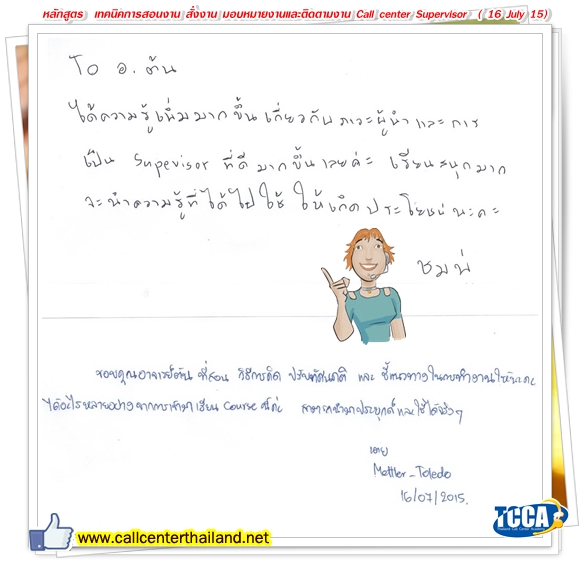 หลักสูตร เทคนิคการสอนงาน สั่งงาน มอบหมายงานและติดตามงาน Call center Supervisor ( 16 July 15)
To อ.ต้น
ได้ความรู้เพิ่มมากขึ้น เกี่ยวกับภาวะผู้นำและการ
เป็น Supevisor ที่ดีมากขึ้นเลยค่ะ เรียนสนุกมาก
จะนำความรู้ที่ได้ไปใช้ ให้เกิดประโยชน์นะคะ
ชมพู่
ขอบคุณอาจารย์ต้น ที่สอน วิธีการคิด ปรับทัศนคติ และ ชี้แนวทางในการทำงานให้นะคะ
ได้อะไรหลายอย่างจากการเข้ามาเรียน Course นี้ค่ะ สามารถนำมาประยุกต์และใช้ได้จริงๆ
Mettler-Toledo
16/07/2015.
TCCA
Thailand Call Center Academy
www.callcenterthailand.net